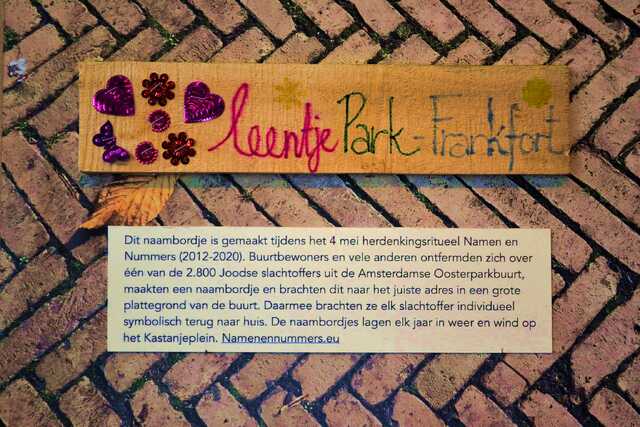 leentje Park-Frankfort
Dit naambordje is gemaakt tijdens het 4 mei herdenkingsritueel Namen en
Nummers (2012-2020). Buurtbewoners en vele anderen ontfermden zich over
één van de 2.800 Joodse slachtoffers uit de Amsterdamse Oosterparkbuurt,
maakten een naambordje en brachten dit naar het juiste adres in een grote
plattegrond van de buurt. Daarmee brachten ze elk slachtoffer individueel
symbolisch terug naar huis. De naambordjes lagen elk jaar in weer en wind op
het Kastanjeplein. Namenennummers.eu